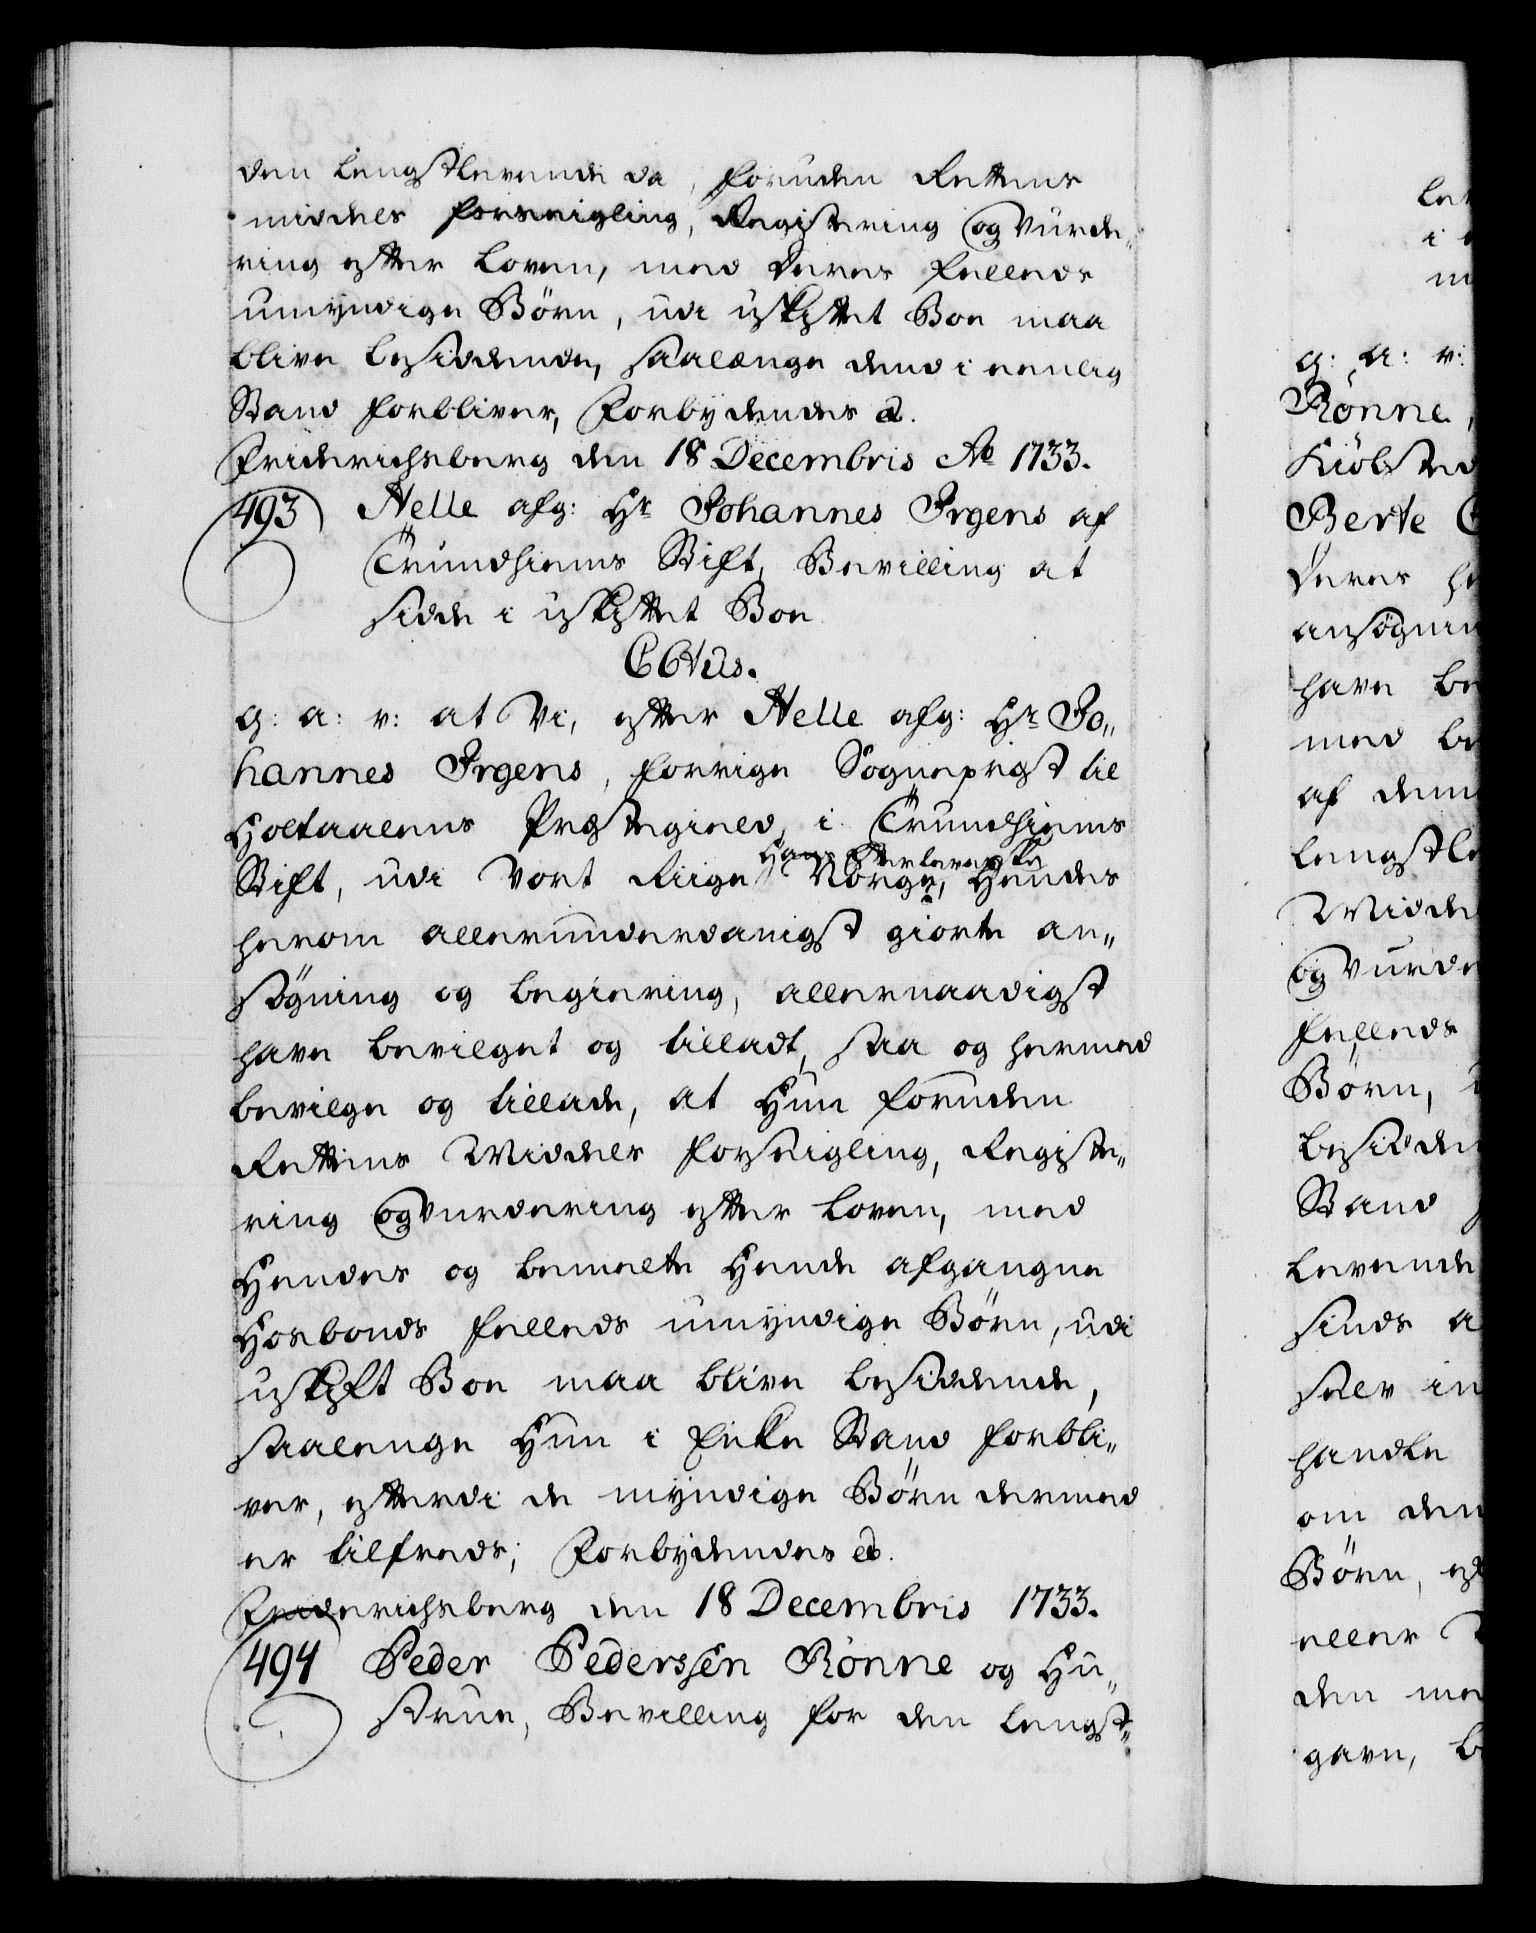 den Lengstlevende da, foruden Rettens
middels Forseigling, Registering og Vurde„
ring efter Loven, med deres fælleds
umyndige Börn, udi uskiftet Boe maa
blive besiddende, saalænge dend i eenlig
Stand forbliver, Forbydendes &.
Friderichsberg den 18 Decembris Ao 1733.
493 Helle afg: Hr Johannes Irgens af
Trundhiems Stift, Bevilling at
sidde i uskiftet Boe
C6tus.
G: A: V: at Vi, efter Helle afg: Hr Jo„
hannes Irgens, forrige Sognepræst til
Holtaalens Præstegield, i Trundhiems
Hans Efterleverske
Stift, udi Vort Riige Norge, Hendes
herom allerunderdanigst giorte an„
søgning og begiering, allernaadigst
have bevilget og tilladt, saa og hermed
bevilge og tillade, at Hun foruden
Rettens Middels Forseigling, Registe„
ring og vurdering efter Loven, med
Hendes og bemelte Hende afgangne
Hosbonds fælleds umyndige Börn, udi
uskift Boe maa blive besiddende,
saalenge Hun i Enke Stand forbli„
ver, efterdi de myndige Börn dermed
er tilfreds; Forbydendes &.
Friderichsberg den 18 Decembris 1733.
494 Peder Pederssen Rönne og Hu„
strue, Bevilling for den Lengst„
lev
i
m
G: A: V:
Rönne,
Kiöbsted
Berte
deres he
ansøgnin
have be
med be
af dem
lengstle
Midde
og Vurde
fælleds
Börn,
besidden
Stand
levende
sinds a
selv in
handle
om den
Börn, ef
eller
den me
gave, b